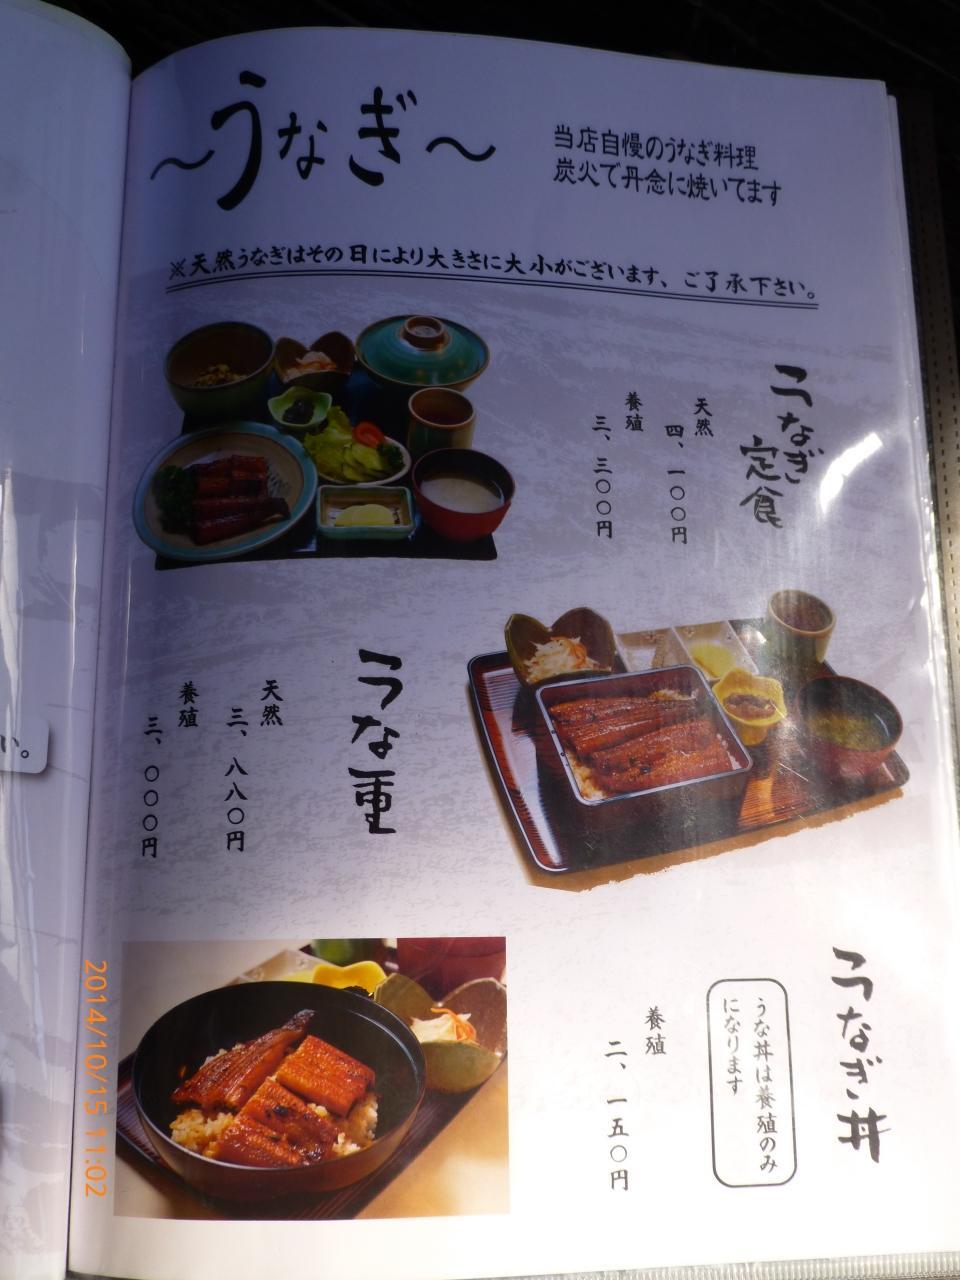 ～うなぎ～
当店自慢のうなぎ料理
炭火で丹念に焼いてます
※天然うなぎはその日により大きさに大小がございます、ご了承下さい。
うなぎ定食
天然
四、一〇〇円
養殖
三、三〇〇円
うな重
天然
三、八八〇円
養殖
三、〇〇〇円
うなぎ丼
うな丼は養殖のみ
になります
養殖
二、一五〇円
い。
2014/10/15 11:02